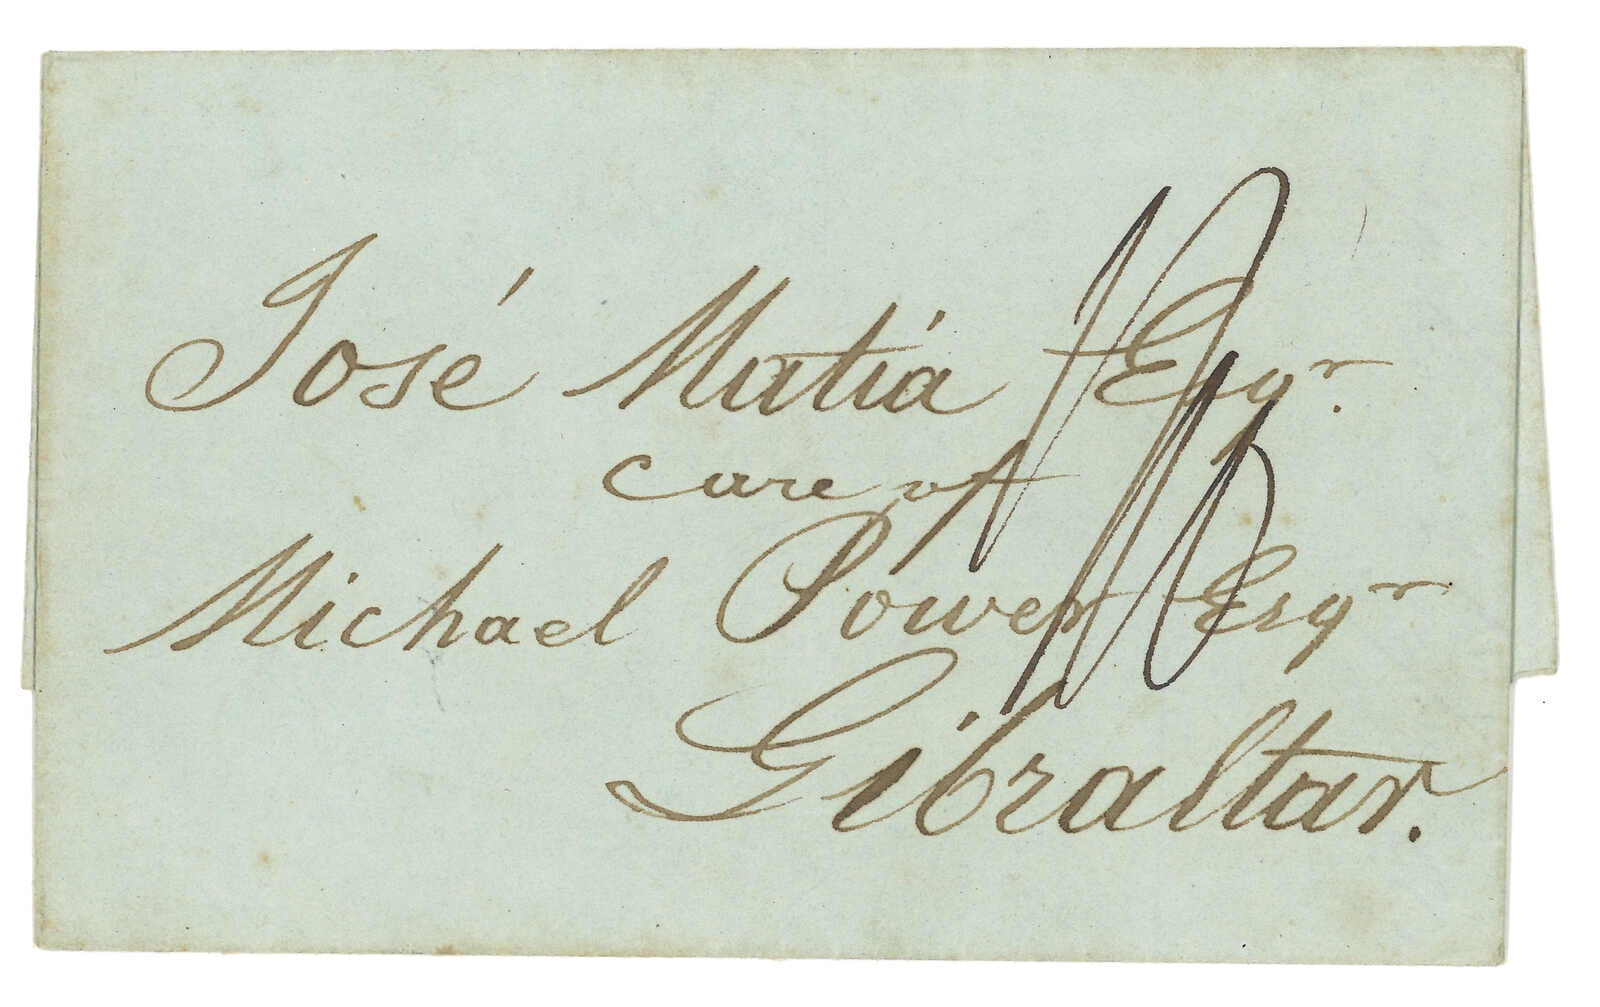 José Matía Esqr.
care of
Michael Power Esqr
Gibraltar.